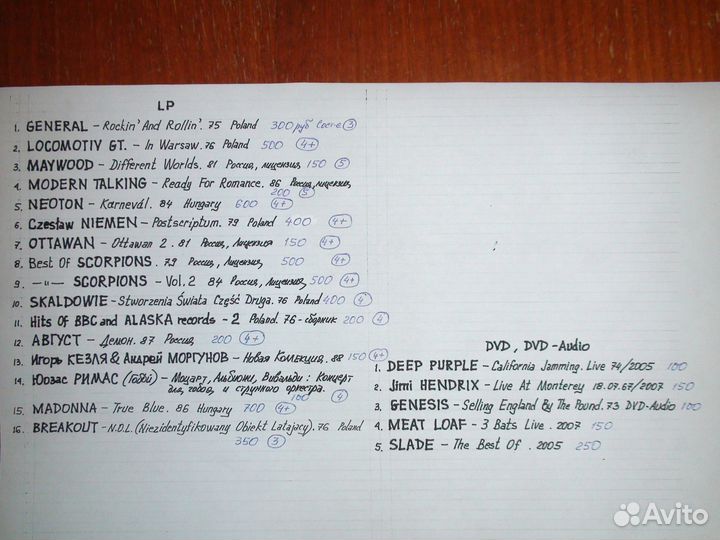 LP
1. GENERAL – Rockin' And Rollin'. 75 Poland 300 руб Сост-е (3)
2. LOCOMOTIV GT. – In Warsaw. 76 Poland 500 (4+)
3. MAYWOOD – Different Worlds. 81 Россия, лицензия 150 (5)
4. MODERN TALKING – Ready For Romance. 86 Россия, лицензия,
200 (5)
5. NEOTON – Karnevál. 84 Hungary 600 (4+)
6. Czesław NIEMEN – Postscriptum. 79 Poland 400 (4+)
7. OTTAWAN – Ottawan 2. 81 Россия, Лицензия 150 (4+)
8. Best Of SCORPIONS. 79 Россия, Лицензия, 500 (4+)
9. –"– SCORPIONS – Vol. 2 84 Россия, Лицензия, 500 (4+)
10. SKALDOWIE – Stworzenia Świata Część Druga. 76 Poland 400 (4)
11. Hits Of BBC and ALASKA records – 2 Poland. 76 - сборник 200 (4)
12. АВГУСТ – Демон. 87 Россия, 200 (4+)
13. Игорь КЕЗЛЯ & Андрей МОРГУНОВ – Новая Коллекция. 88 150 (4+)
14. Юозас РИМАС (Гобой) – Моцарт, Альбиони, Вивальди: Концерт
для гобоя, и струнного оркестра.
100 (4)
15. MADONNA – True Blue. 86 Hungary 700 (4+)
16. BREAKOUT – N.O.L. (Niezidentyfikowany Obiekt Latajacy). 76 Poland
350 (3)
DVD, DVD-Audio
1. DEEP PURPLE – California Jamming. Live 74/2005 100
2. Jimi HENDRIX – Live At Monterey 18.07.67/2007 150
3. GENESIS – Selling England By The Pound. 73 DVD-Audio 100
4. MEAT LOAF – 3 Bats Live. 2007 150
5. SLADE – The Best Of. 2005 250
Avito